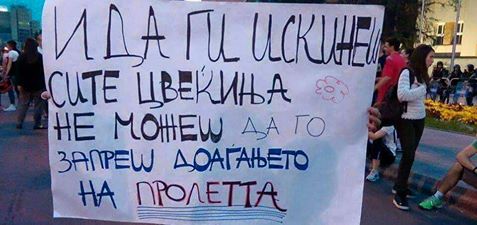 И ДА ГИ ИСКИНЕШ
СИТЕ ЦВЕЌИЊА
НЕ МОЖЕШ ДА ГО
ЗАПРЕШ ДОАЃАЊЕТО
НА ПРОЛЕТТА